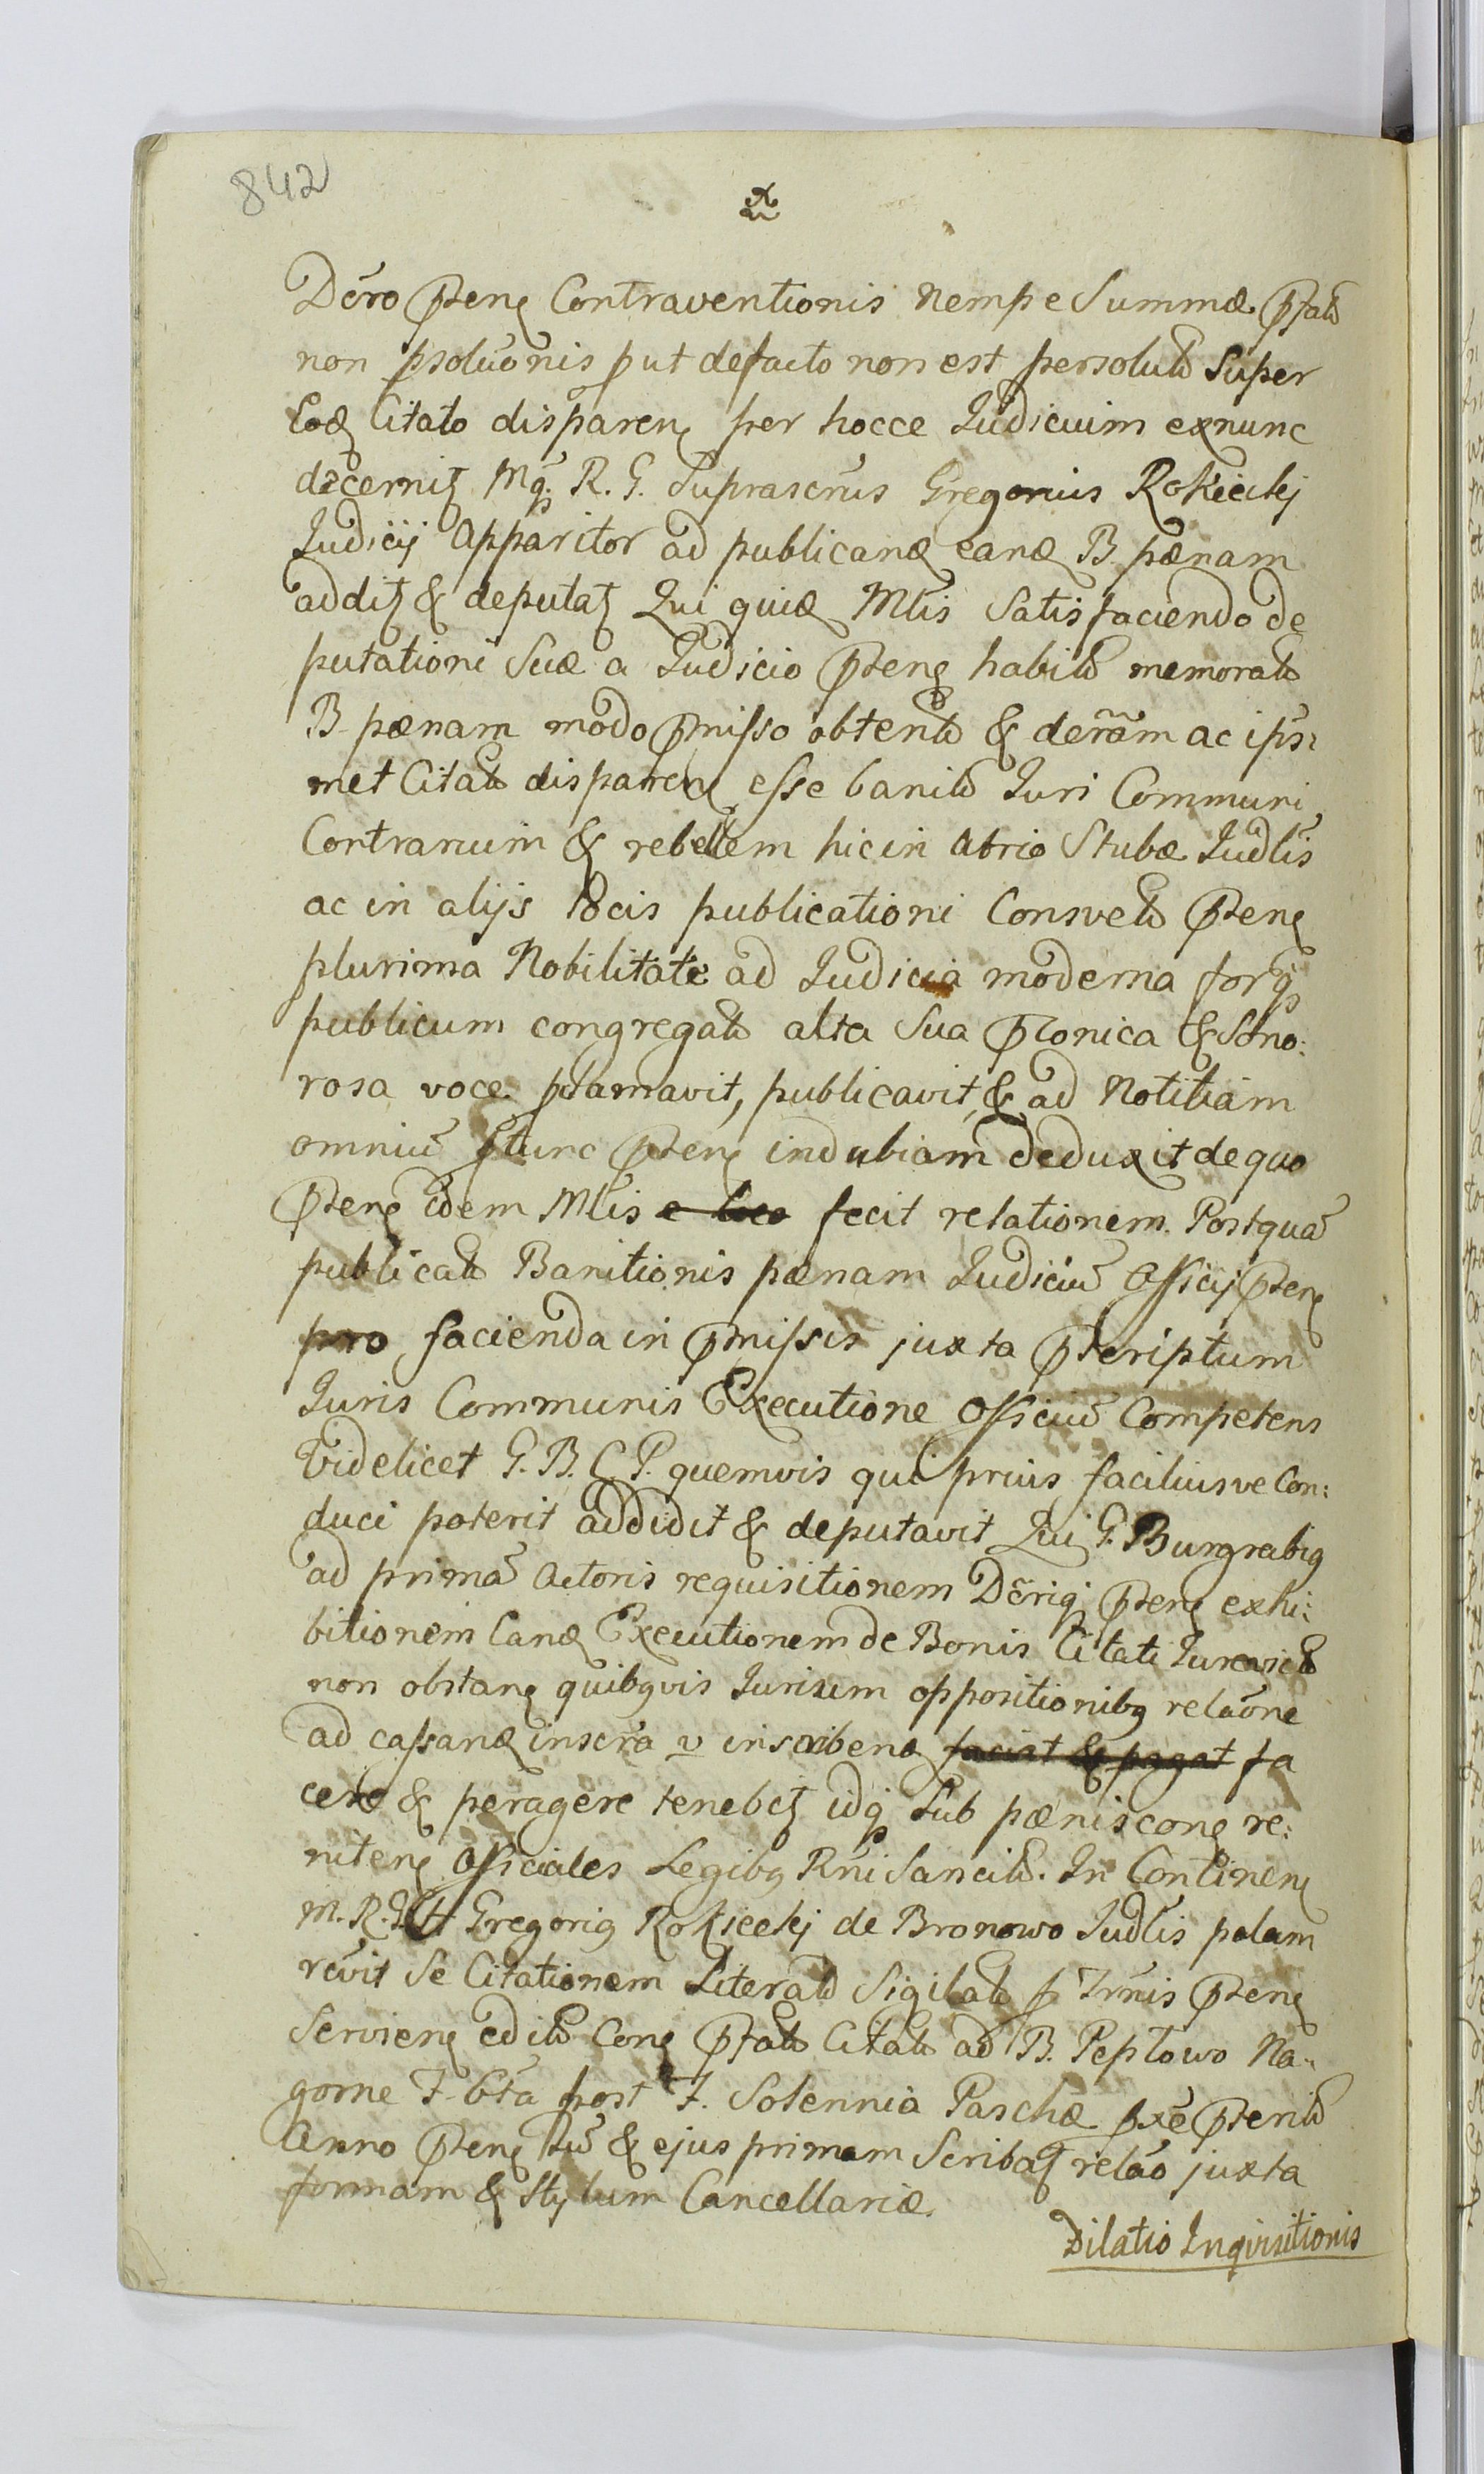 842
Dčro Pteng Contraventionis Nempe Summæ Pfatẽ
non psolučnis put defacto non est persolutẽ Super
Eoq Citato disparen per hocce Judicium exnunc
decernit Mq. R. G. Suprascr̃us Gregorius Rokicikj
Judicij Apparitor ad publicandą eandą B. pænam
addit & deputat Qui quidę Mlis Satisfaciendo de
putationi Suæ a Judicio Pteng habitẽ memoratẽ
B. pænam modo Pmisso obtentẽ & der̃am ac ips:
met Citatẽ disparen esse banitẽ Juri Communi
Contrarium & rebellem hic in Atrio Stubæ Judl̃is
ac in alijs locis publicationi Consvetẽ Pteng
plurima Nobilitate ad Judicia moderna forq
publicum congregatẽ alta Sua Ptonica & Sono:
rosa voce pclamavit, publicavit, & ad Notitiam
omniũ ptunc Pteng indubiam deduxit de quo
Pteng idem Mlis e loco fecit relationem. Postquã
publicatẽ Banitionis pænam Judiciũ Officij Pteng
pro facienda in Pmissis juxta Pscriptum
Juris Communis Executione Officiũ Competens
Videlicet G. B. C. P. quemvis qui prius faciliusve Con:
duci poterit addidit & deputavit Qui G. Burgrabig
ad primã Actoris requisitionem Dčriq Pteng exhi:
bitionem Eandą Executionem de Bonis Citati Jurevictẽ
non obstang quibgvis Jurisum oppositionibg relačne
ad cassandą inscr̃a v inscribendą faciat & pagat fa
cere & peragere tenebit idq Sub pænis cong re:
niteng Officiales Legibg Rñi Sancitẽ. In Contineng
M. R. G. Gregorig Rokicekj de Bronowo Judl̃is palam
rčvit Se Citationem Literatẽ Sigilatẽ p Jr̃nis Pteng
Servieng editẽ Cong Pfatẽ Citatẽ ad B. Peptowo Na:
gorne F. 6ta post F. Solennia Paschæ pxẽ Pteritẽ
Anno Pteng Tũ & ejus primam Scribat relão juxta
formam & Stylum Cancellariæ.
Dilatio Inqvisitionis